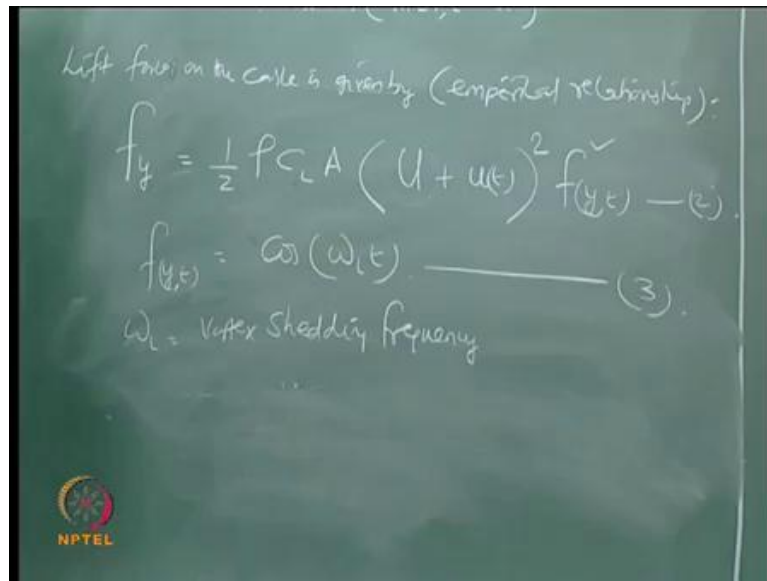 Lift force on the cable is given by (emperical relationship):
f_y = 1/2 ρ C_L A (U + u(t))^2 f(y,t) — (2).
f(y,t) = Cos (ω_L t). ——— (3).
ω_L = Vortex Shedding frequency
NPTEL